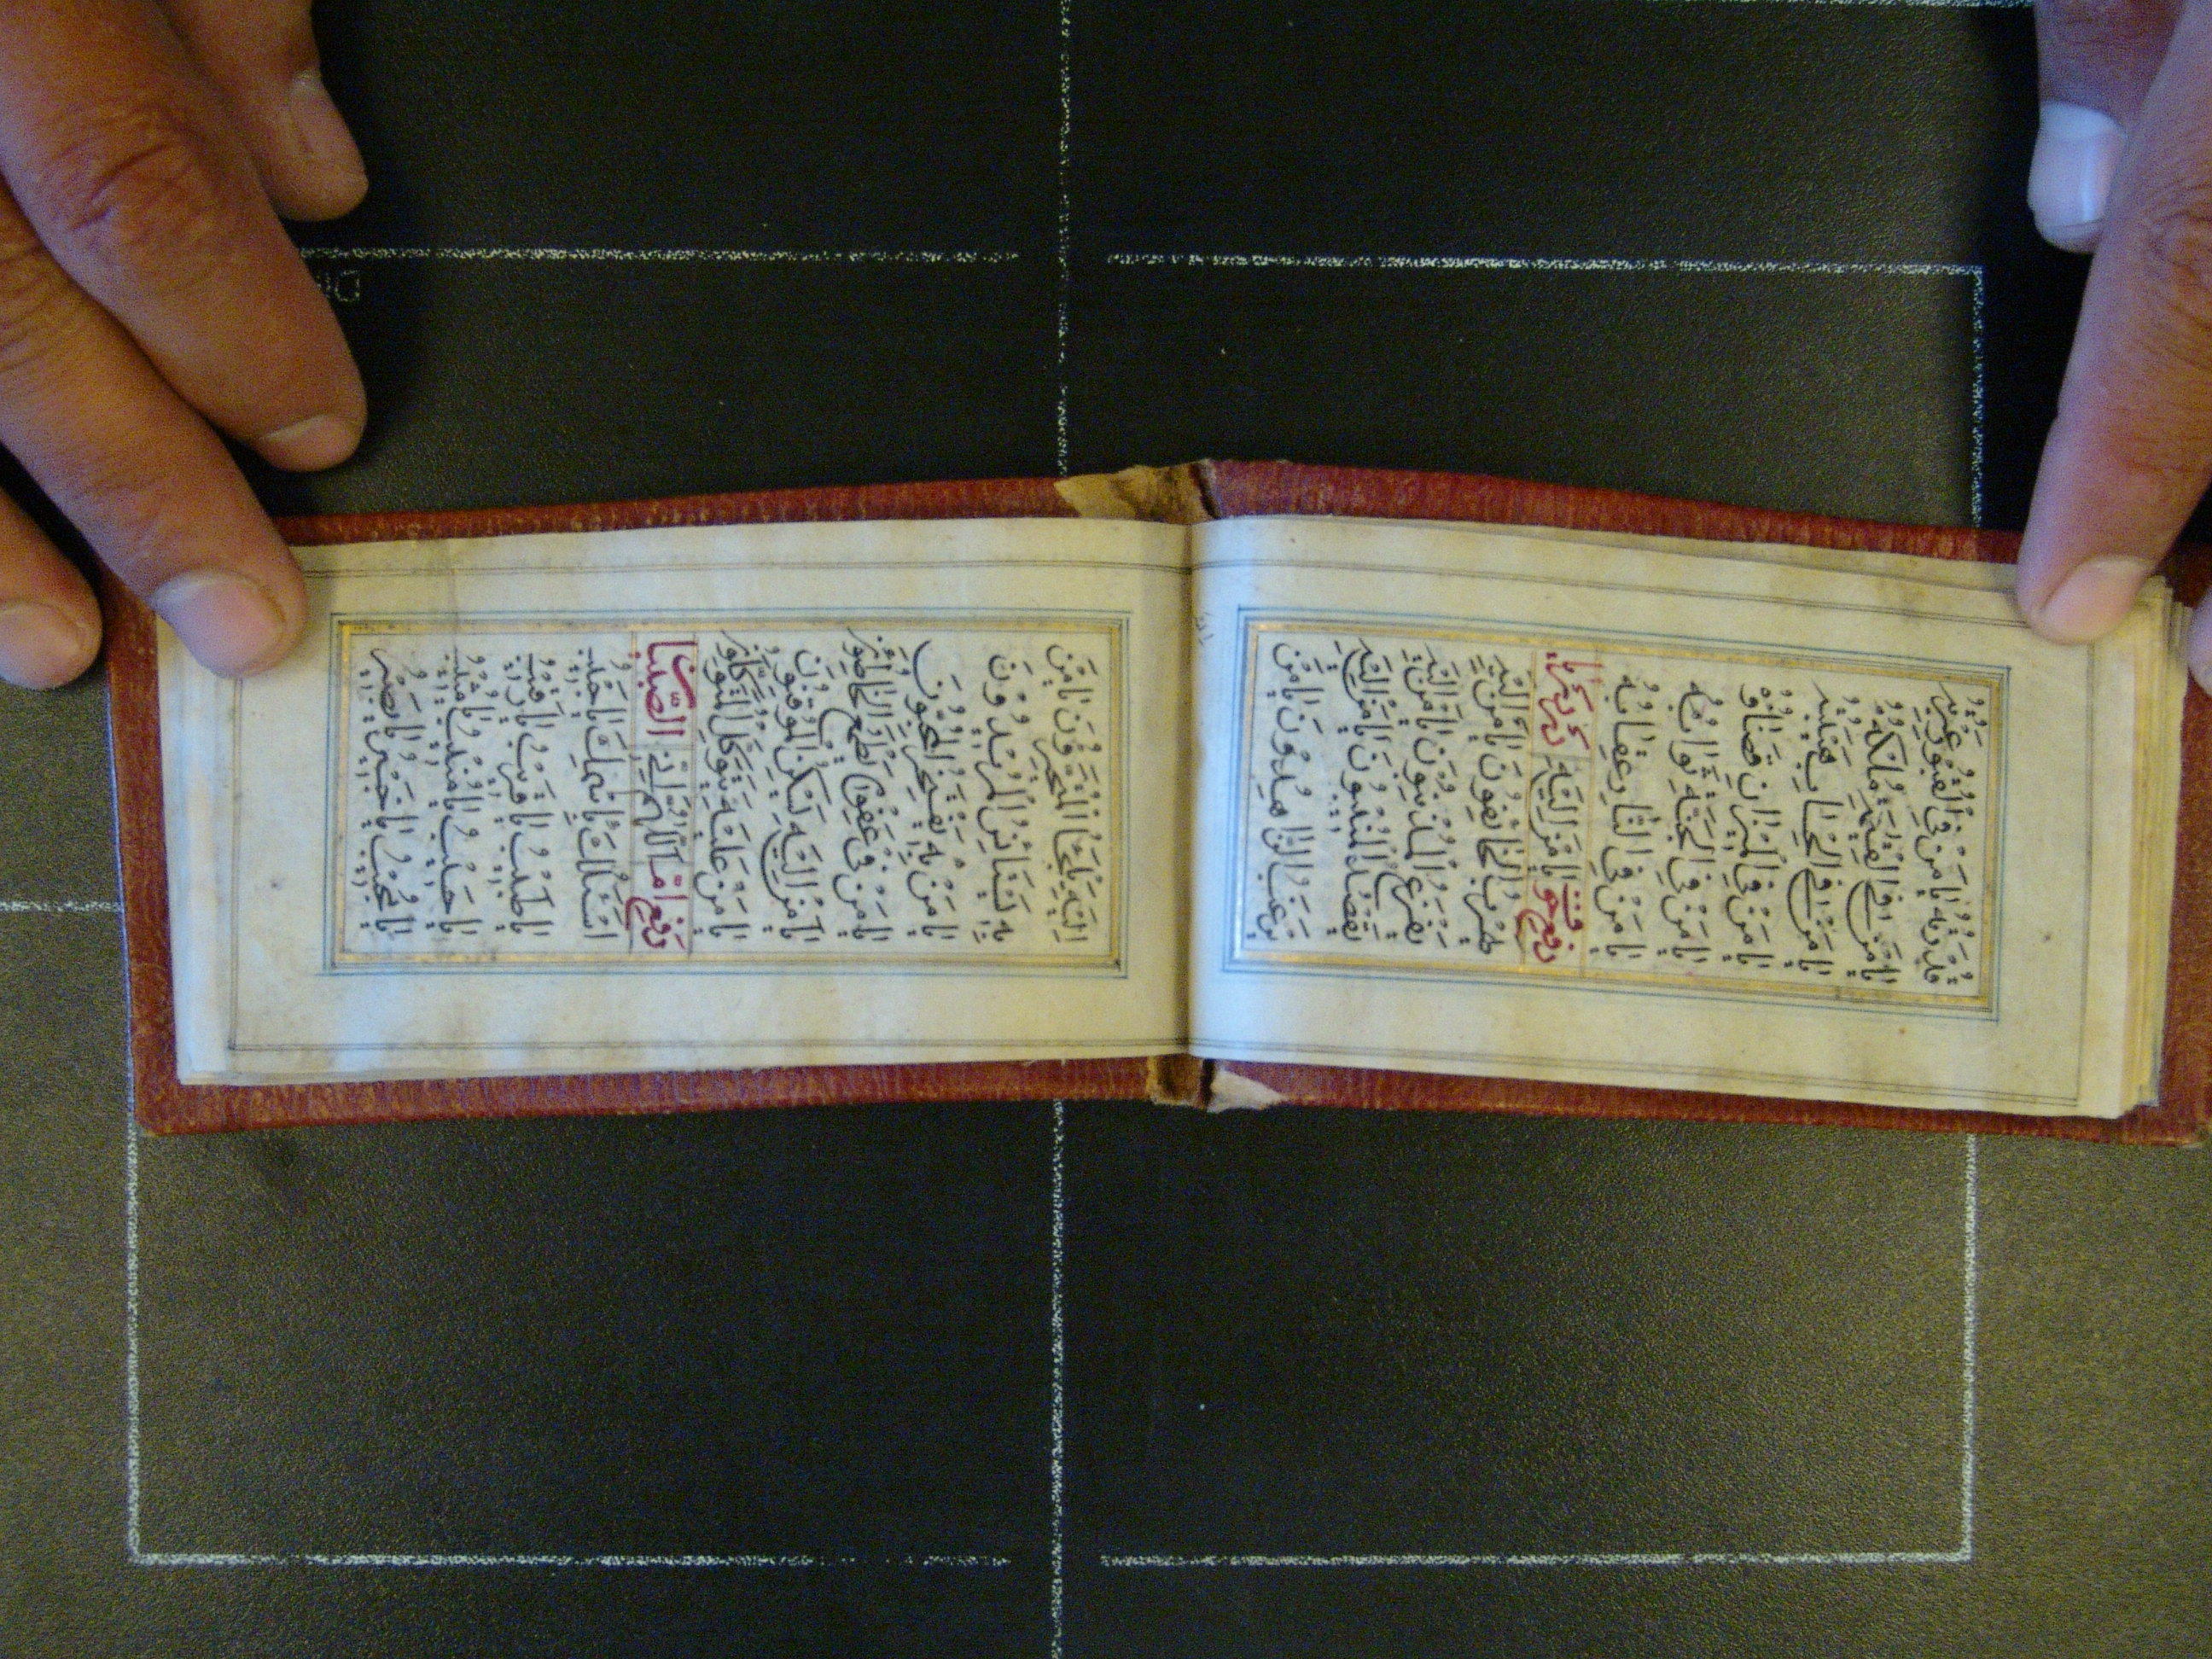 قُدْرَتُهُ يَا مَنْ فِي الْقُبُورِ عِبْرَتُهُ
يَا مَنْ فِي الْقِيٰمَةِ مُلْكُهُ
يَا مَنْ فِي الْحِسَابِ هَيْبَتُهُ
يَا مَنْ فِي الْمِيزَانِ قَضَاؤُهُ
يَا مَنْ فِي الْجَنَّةِ ثَوَابُهُ
يَا مَنْ فِي النَّارِ عِقَابُهُ
يَا مَنْ إِلَيْهِ
يَهْرُبُ الْخَائِفُونَ يَا مَنْ إِلَيْهِ
يَفْزَعُ الْمُذْنِبُونَ يَا مَنْ إِلَيْهِ
يَقْصُدُ الْمُنِيبُونَ يَا مَنْ إِلَيْهِ
يَرْغَبُ الزَّاهِدُونَ يَا مَنْ
إِلَيْهِ يَلْجَأُ الْمُتَحَيِّرُونَ يَا مَنْ
بِهِ يَسْتَأْنِسُ الْمُرِيدُونَ
يَا مَنْ بِهِ يَفْتَخِرُ الْمُحِبُّونَ
يَا مَنْ فِي عَفْوِهِ يَطْمَعُ الْخَاطِئُونَ
يَا مَنْ إِلَيْهِ يَسْكُنُ الْمُوقِنُونَ
يَا مَنْ عَلَيْهِ يَتَوَكَّلُ الْمُتَوَكِّلُونَ
رفع امّ اللَّهُمَّ إِنِّي الصبيان
أَسْئَلُكَ بِاسْمِكَ يَا حَبِيبُ
يَا طَبِيبُ يَا قَرِيبُ يَا رَقِيبُ
يَا حَسِيبُ يَا مُهِيبُ يَا مُثِيبُ
يَا مُجِيبُ يَا خَبِيرُ يَا بَصِيرُ